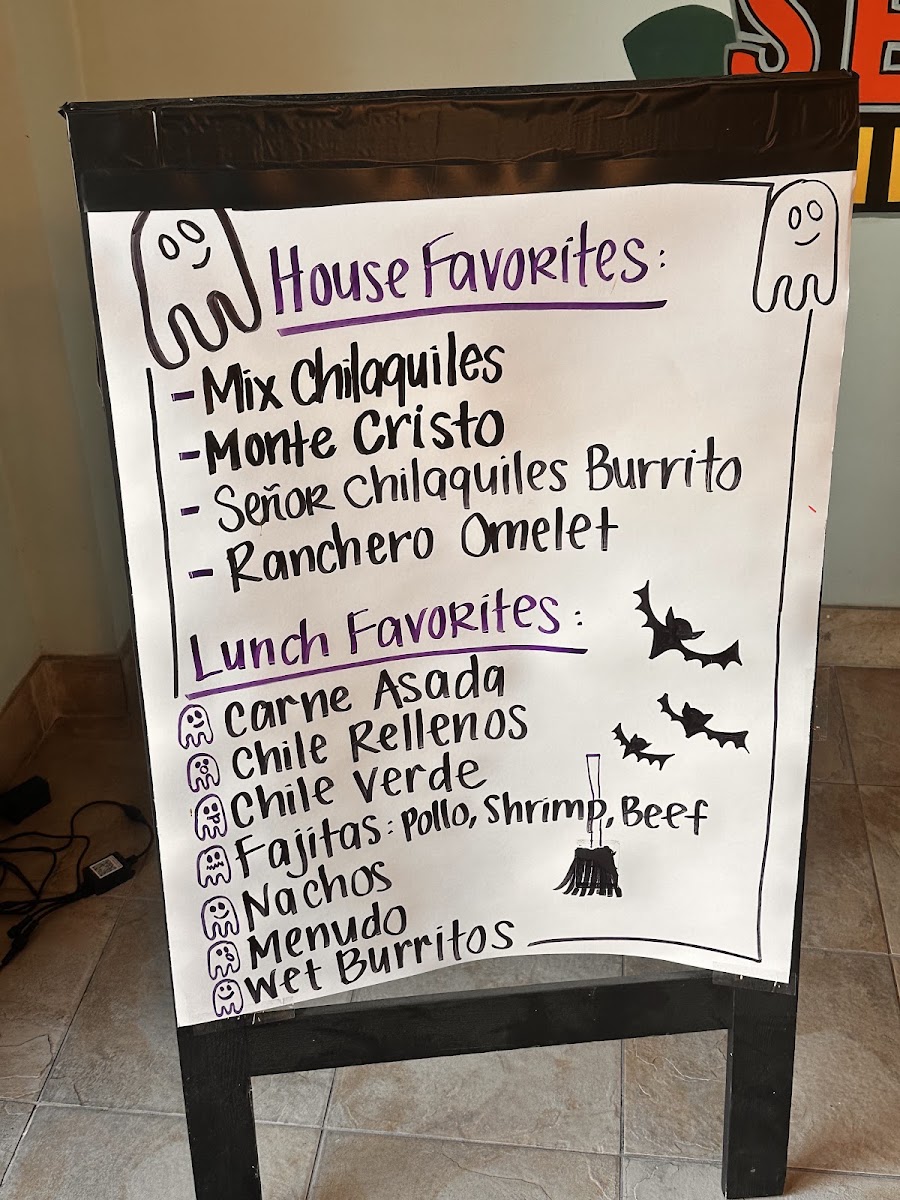 SE
House Favorites:
- Mix Chilaquiles
- Monte Cristo
- Señor Chilaquiles Burrito
- Ranchero Omelet
Lunch Favorites:
Carne Asada
Chile Rellenos
Chile Verde
Fajitas: Pollo, Shrimp, Beef
Nachos
Menudo
Wet Burritos